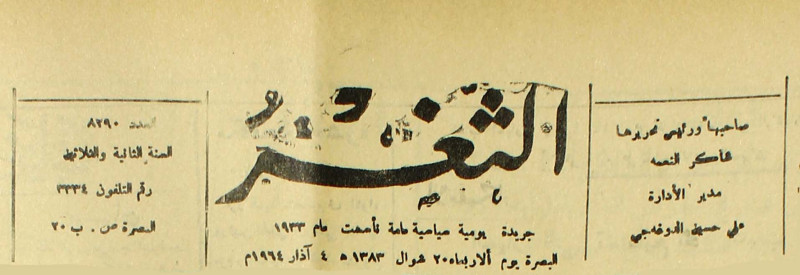 صاحبها ورئيس تحريرها
شاكر النعمه
مدير الأدارة
علي حسين الدوغه‌جي
الثغر
جريدة يومية سياسية عامة تأسست عام ١٩٣٣
البصرة يوم ألاربعاء ٢٠ شوال ١٣٨٣ ه ٤ آذار ١٩٦٤م
العدد ٨٢٩٠
السنة الثانية والثلاثين
رقم التلفون ٣٣٣٤
البصرة ص . ب ٢٠